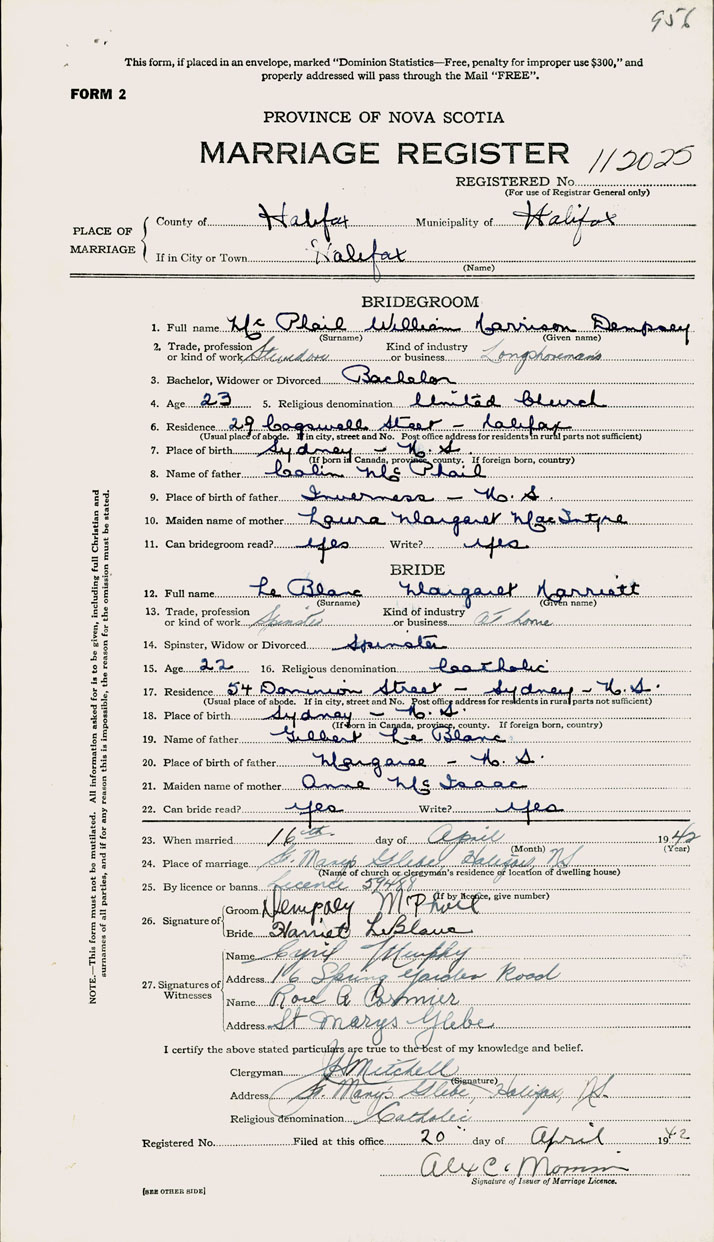 956
This form, if placed in an envelope, marked "Dominion Statistics—Free, penalty for improper use $300," and
properly addressed will pass through the Mail "FREE".
FORM 2
PROVINCE OF NOVA SCOTIA
MARRIAGE REGISTER
112025
REGISTERED No.
(For use of Registrar General only)
PLACE OF MARRIAGE
County of Halifax Municipality of Halifax
If in City or Town Halifax
(Name)
BRIDEGROOM
1. Full name Mc Phail William Harrison Dempsey
(Surname) (Given name)
2. Trade, profession or kind of work Stevedore Kind of industry or business Longshoreman's
3. Bachelor, Widower or Divorced Bachelor
4. Age 23 5. Religious denomination United Church
6. Residence 29 Cogswell Street - Halifax
(Usual place of abode. If in city, street and No. Post office address for residents in rural parts not sufficient)
7. Place of birth Sydney - N. S.
(If born in Canada, province, county. If foreign born, country)
8. Name of father Colin Mc Phail
9. Place of birth of father Inverness - N. S.
10. Maiden name of mother Laura Margaret MacIntyre
11. Can bridegroom read? yes Write? yes
BRIDE
12. Full name Le Blanc Margaret Harriett
(Surname) (Given name)
13. Trade, profession or kind of work Spinster Kind of industry or business At home
14. Spinster, Widow or Divorced Spinster
15. Age 22 16. Religious denomination Catholic
17. Residence 54 Dominion Street - Sydney - N. S.
(Usual place of abode. If in city, street and No. Post office address for residents in rural parts not sufficient)
18. Place of birth Sydney - N. S.
(If born in Canada, province, county. If foreign born, country)
19. Name of father Gilbert Le Blanc
20. Place of birth of father Margaree - N. S.
21. Maiden name of mother Anne Mc Isaac
22. Can bride read? yes Write? yes
23. When married 16th day of April 1942
(Month) (Year)
24. Place of marriage St. Marys Glebe, Halifax, NS
(Name of church or clergyman's residence or location of dwelling house)
25. By licence or banns Licence
(If by licence, give number)
26. Signature of
Groom Dempsey McPhail
Bride Harriet LeBlanc
27. Signatures of Witnesses
Name Cyril Murphy
Address 16 Spring Garden Road
Name Rose A Cormier
Address St Marys Glebe
I certify the above stated particulars are true to the best of my knowledge and belief.
Clergyman Mitchell
(Signature)
Address St. Marys Glebe, Halifax, NS.
Religious denomination Catholic
Registered No. Filed at this office 20 day of April 1942
Alex C.
Signature of Issuer of Marriage Licence.
[SEE OTHER SIDE]
NOTE.—This form must not be mutilated. All information asked for is to be given, including full Christian and
surnames of all parties, and if for any reason this is impossible, the reason for the omission must be stated.